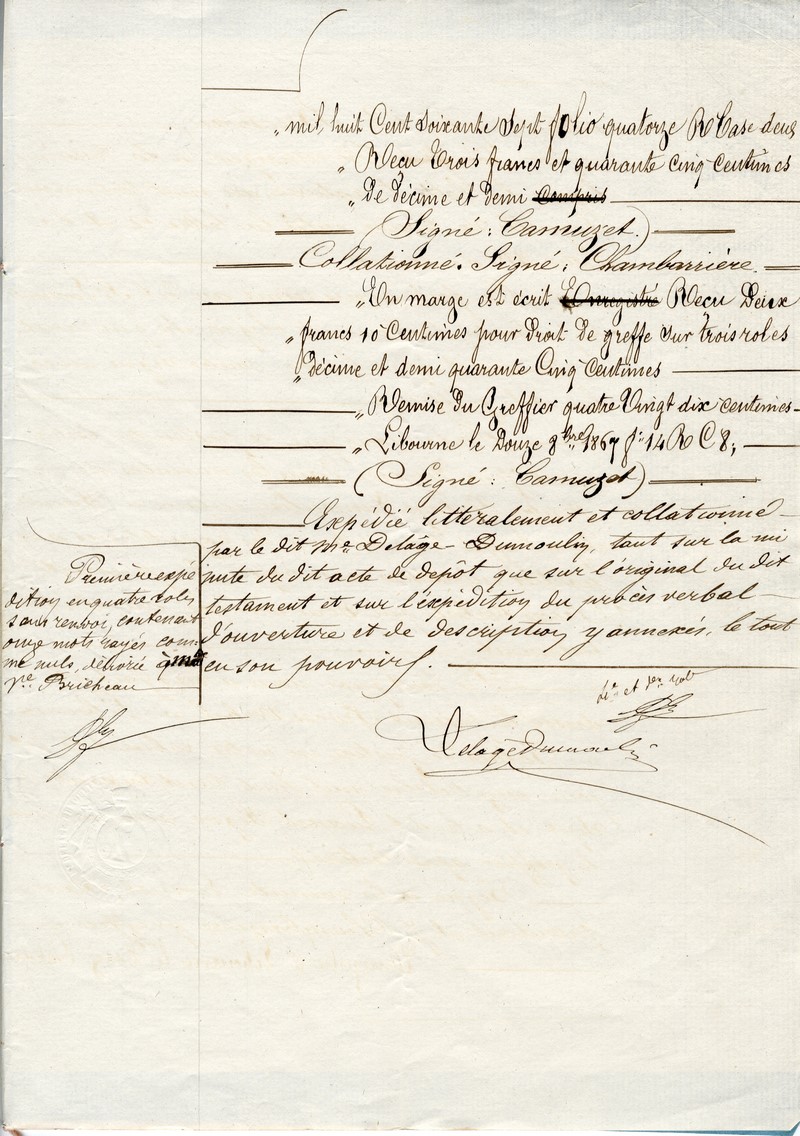 „ mil huit Cent soixante Sept folio quatorze R Case deux
„ Reçu Trois francs et quarante cinq Centimes
„ de décime et demi compris
(Signé : Camuzet.)
Collationné. Signé : Chambarrière.
„ En marge est écrit Enregistré Reçu Deux
„ francs 10 Centimes pour Droit de greffe sur trois roles
„ Décime et demi quarante Cinq Centimes
„ Remise du Greffier quatre Vingt dix centimes
„ Libourne le Douze 8bre 1867 fo 14 R C 8,
(Signé : Camuzet)
Expédié littéralement et collationné
par le dit Me Delage-Dumoulin, tant sur la mi
nute du dit acte de depôt que sur l'original du dit
testament et sur l'expédition du procès verbal
d'ouverture et de description y annexés, le tout
en son pouvoir.
Première expé
dition en quatre roles
sans renvoi, contenant
onze mots rayés com
me nuls, délivrée à
Ve Bricheau
DelageDumoulin